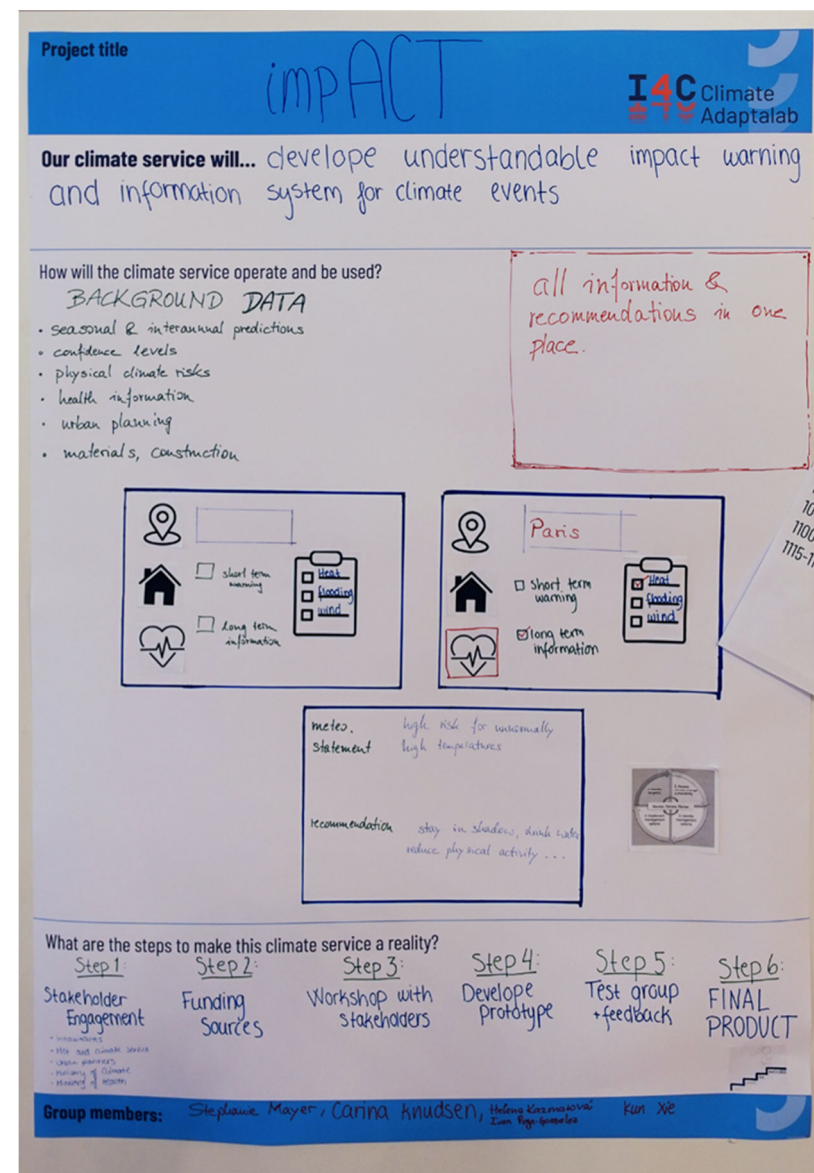 Project title
impACT
I4C Climate
Adaptalab
Our climate service will... develope understandable impact warning
and information system for climate events
How will the climate service operate and be used?
BACKGROUND DATA
• seasonal & interannual predictions
• confidence levels
• physical climate risks
• health information
• urban planning
• materials, construction
all information &
recommendations in one
place.
short term
warning
long term
information
Heat
flooding
wind
Paris
short term
warning
long term
information
Heat
flooding
wind
10
1100
1115-1
meteo.
statement
high risk for unnormally
high temperatures
recommendation
stay in shadow, drink water
reduce physical activity ...
What are the steps to make this climate service a reality?
Step 1:
Stakeholder
Engagement
• Met and climate service
• urban planners
• Ministry of Climate
• Ministry of Health
Step 2:
Funding
Sources
Step 3:
Workshop with
stakeholders
Step 4:
Develope
prototype
Step 5:
Test group
+feedback
Step 6:
FINAL
PRODUCT
Group members: Stephanie Mayer, Carina Knudsen, Helena Kazmatová Kun Xie
Ivan